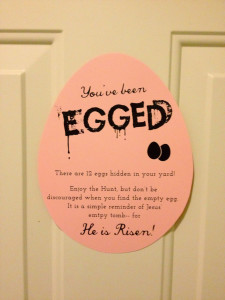 You've been
EGGED
There are 12 eggs hidden in your yard!
Enjoy the Hunt, but don't be
discouraged when you find the empty egg.
It is a simple reminder of Jesus
emtpy tomb-- for
He is Risen!